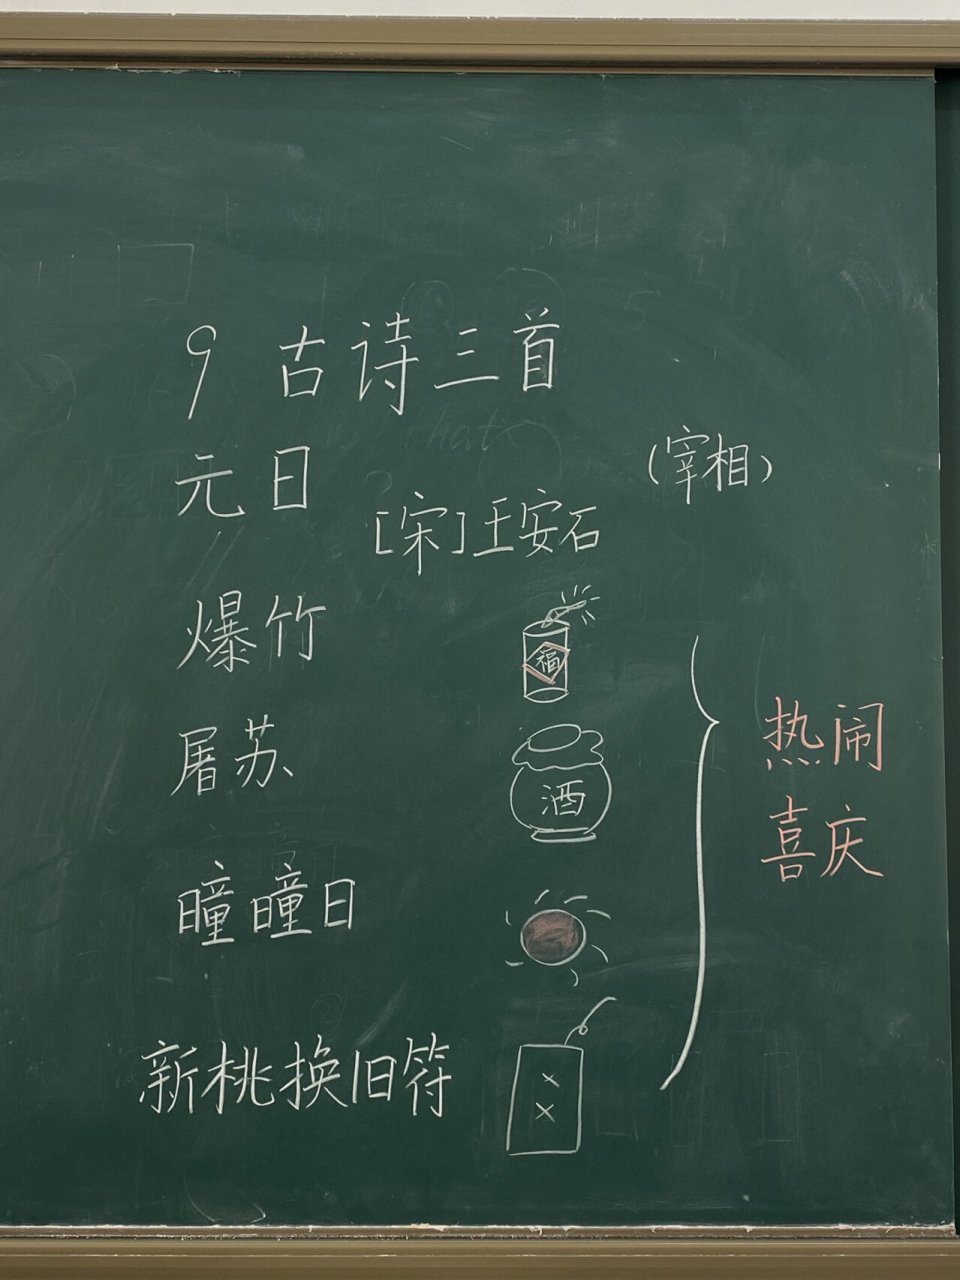 9 古诗三首
元日
(宰相)
[宋]王安石
爆竹
福
屠苏
酒
热闹
喜庆
曈曈日
新桃换旧符
××